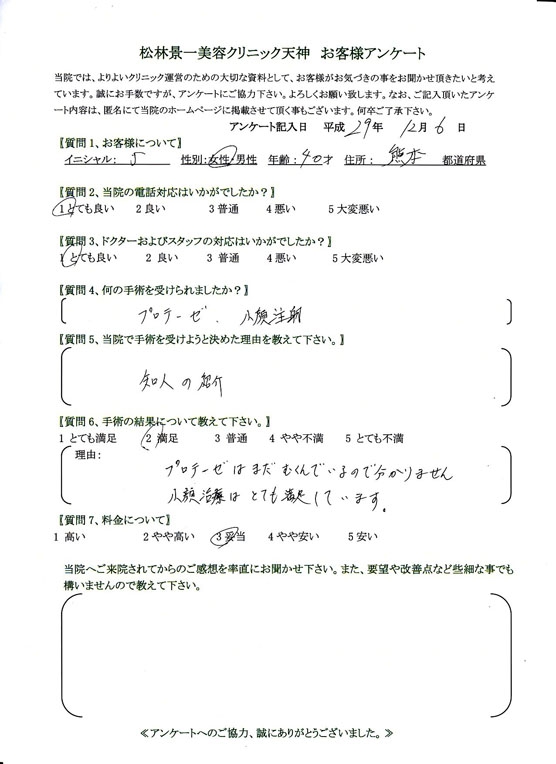 松林景一美容クリニック天神　お客様アンケート
当院では、よりよいクリニック運営のための大切な資料として、お客様がお気づきの事をお聞かせ頂きたいと考え
ています。誠にお手数ですが、アンケートにご協力下さい。よろしくお願い致します。なお、ご記入頂いたアンケ
ート内容は、匿名にて当院のホームページに掲載させて頂く事もございます。何卒ご了承下さい。
アンケート記入日　平成 29年 12月 6 日
〖質問1、お客様について〗
イニシャル： J　性別：女性・男性　年齢：40才　住所： 熊本 都道府県
〖質問2、当院の電話対応はいかがでしたか？〗
1 とても良い　2 良い　3 普通　4 悪い　5 大変悪い
〖質問3、ドクターおよびスタッフの対応はいかがでしたか？〗
1 とても良い　2 良い　3 普通　4 悪い　5 大変悪い
〖質問4、何の手術を受けられましたか？〗
プロテーゼ、小顔注射
〖質問5、当院で手術を受けようと決めた理由を教えて下さい。〗
知人の紹介
〖質問6、手術の結果について教えて下さい。〗
1 とても満足　2 満足　3 普通　4 やや不満　5 とても不満
理由：
プロテーゼはまだむくんでいるので分かりません
小顔治療はとても満足しています。
〖質問7、料金について〗
1 高い　2 やや高い　3 妥当　4 やや安い　5 安い
当院へご来院されてからのご感想を率直にお聞かせ下さい。また、要望や改善点など些細な事でも
構いませんので教えて下さい。
≪アンケートへのご協力、誠にありがとうございました。≫